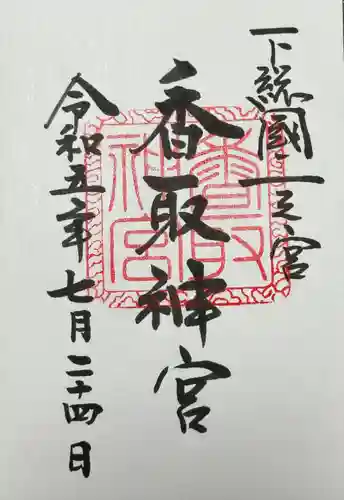 下総國一之宮
香取神宮
香取神宮
令和五年七月二十四日